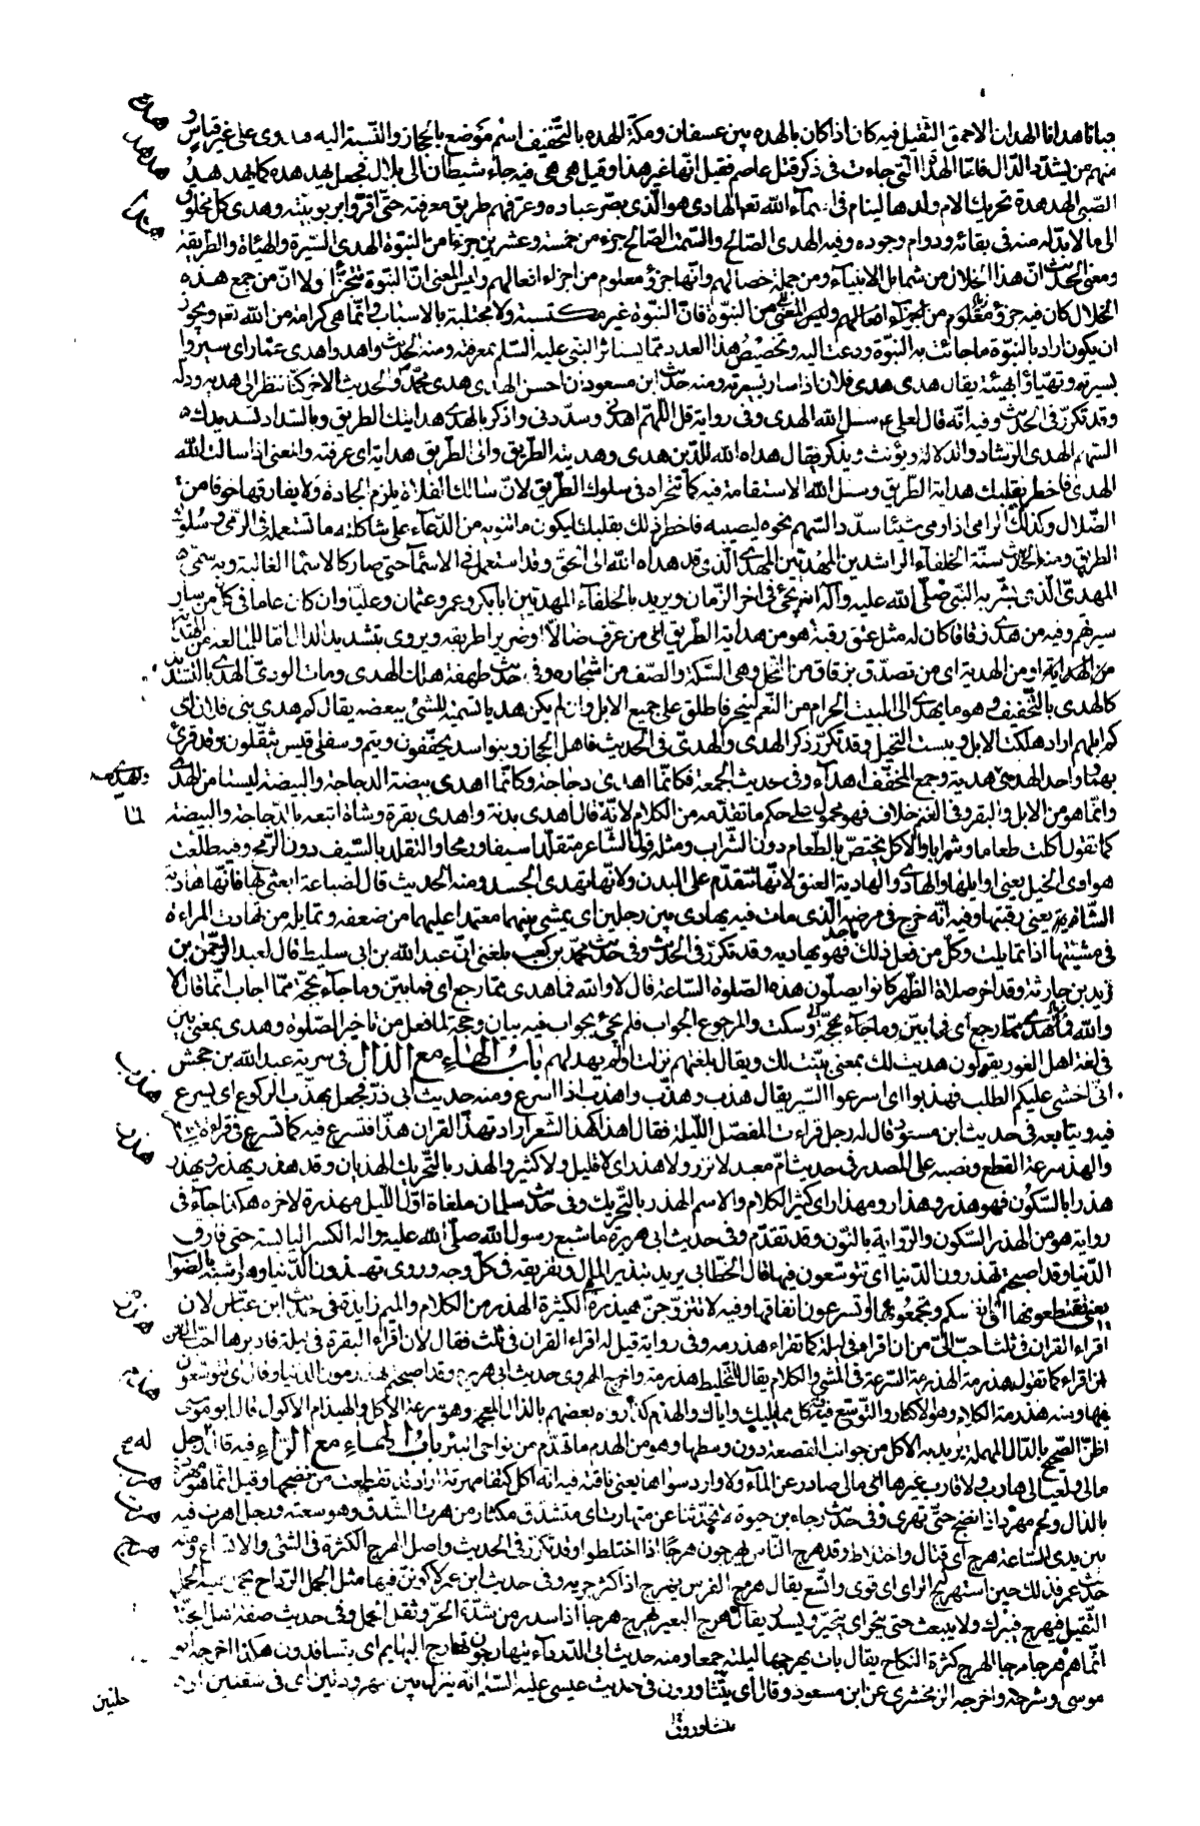 جبانا هدانا الهدان الاحمق الثقيل فيه كان اذا كان بالهده بين عسفان ومكة الهده بالتخفيف اسم موضع بالحجاز والنسبة اليه هدوى على غير قياس و
منهم من يشدد الدال فاما الهداة التى جاءت فى ذكر قتل عاصم فقيل انها غير هذا وقيل هى هى فيه جاء شيطان الى بلال فجعل يهدهده كما يهدهد
الصبى الهدهدة تحريك الام ولدها لينام فى اسماء الله تعم الهادى هو الذى بصر عباده وعرفهم طريق معرفته حتى اقروا بربوبيته وهدى كل مخلوق
الى ما لا بد له منه فى بقائه ودوام وجوده وفيه الهدى الصالح والسمت الصالح جزء من خمسة وعشرين جزءا من النبوة الهدى السيرة والهيأة والطريقة
ومعنى الحديث ان هذه الخلال من شمايل الانبياء ومن جملة خصالهم وانها جزؤ معلوم من اجزاء افعالهم وليس المعنى ان النبوة تتجزأ ولا ان من جمع هذه
الخلال كان فيه جزؤ من النبوة فان النبوة غير مكتسبة ولا مجتلبة بالاسباب وانما هى كرامة من الله تعم ويجوز
ان يكون اراد بالنبوة ما جائت به النبوة ودعت اليه وتخصيص هذا العدد مما يستاثر النبى عليه السلم بمعرفته ومنه الحديث واهدوا هدى عمار اى سيروا
بسيرته وتهيأوا بهيئته يقال هدى هدى فلان اذا سار بسيرته ومنه حديث ابن مسعود ان احسن الهدى هدى محمد والحديث الاخر كنا ننظر الى هديه ودله
وقد تكرر فى الحديث وفيه انه قال لعلى ع سل الله الهدى وفى رواية قل اللهم اهدنى وسددنى واذكر بالهدى هدايتك الطريق وبالسداد تسديدك
السهم الهدى الرشاد والدلالة ويؤنث ويذكر يقال هداه الله للدين هدى وهديته الطريق والى الطريق هداية اى عرفته والمعنى اذا سالت الله
الهدى فاخطر بقلبك هداية الطريق وسل الله الاستقامة فيه كما تتحراه فى سلوك الطريق لان سالك الفلاة يلزم الجادة ولا يفارقها خوفا من
الضلال وكذلك الرامى اذا رمى شيئا سدد السهم نحوه ليصيبه فاخطر ذلك بقلبك ليكون ما تنويه من الدعاء على شاكلة ما تستعمله فى الرمى وسلوك
الطريق ومنه الحديث سنة الخلفاء الراشدين المهديين المهدى الذى قد هداه الله الى الحق وقد استعمل فى الاسماء حتى صار كالاسماء الغالبة وبه سمى
المهدى الذى بشر به النبى صلى الله عليه وآله انه يجئ فى اخر الزمان ويريد بالخلفاء المهديين ابا بكر وعمر وعثمان وعليا وان كان عاما فى كل من سار
سيرتهم وفيه من هدى زقاقا كان له مثل عتق رقبة هو من هداية الطريق اى من عرف ضالا او ضريرا طريقه ويروى بتشديد الدال اما للمبالغة من الهداية
او من الهدية اى من تصدق بزقاق من النخل وهى السكة والصف من اشجاره وفى حديث طهفة هلك الهدى ومات الودى الهدى بالتشديد
كالهدى بالتخفيف وهو ما يهدى الى البيت الحرام من النعم لينحر فاطلق على جميع الابل وان لم يكن هديا تسمية للشئ ببعضه يقال كم هدى بنى فلان اى
كم ابلهم اراد هلكت الابل ويبست النخيل وقد تكرر ذكر الهدى والهدى فى الحديث فاهل الحجاز وبنو اسد يخففون ويتم وسفلى قيس يثقلون وقد قرئ
بهما وواحد الهدى هدية وجمع المخفف اهداء وفى حديث الجمعة فكانما اهدى دجاجة وكانما اهدى بيضة الدجاجة والبيضة ليستا من الهدى
وانما هو من الابل والبقر وفى الغنم خلاف فهو محمول على حكم ما تقدمه من الكلام لانه لما قال اهدى بدنة واهدى بقرة وشاة اتبعه بالدجاجة والبيضة
كما تقول اكلت طعاما وشرابا والاكل يختص بالطعام دون الشراب ومثله قول الشاعر متقلدا سيفا ورمحا والتقلد بالسيف دون الرمح وفيه طلعت
هوادى الخيل يعنى اوايلها والهادى والهادية العنق لانها تتقدم على البدن ولانها تهدى الجسد ومنه الحديث قال لضباعة ابعثى بها فانها هادية
الشاة يعنى رقبتها وفيه انه خرج فى مرضه الذى مات فيه يهادى بين رجلين اى يمشى بينهما معتمدا عليهما من ضعفه وتمايله من تهادت المراءة
فى مشيتها اذا تمايلت وكل من فعل ذلك باحد فهو يهاديه وقد تكرر فى الحديث وفى حديث محمد بن كعب بلغنى ان عبد الله بن ابى سليط قال لعبد الرحمن بن
زيد بن حارثة وقد اخر صلاة الظهر كانوا يصلون هذه الصلوة الساعة قال لا والله فما هدى مما رجع اى فما بين وما جاء بحجة مما اجاب انما قال لا
والله وسكت والمرجوع الجواب فلم يجئ بجواب فيه بيان وحجة لما فعل من تاخير الصلوة وهدى بمعنى بين
فى لغة اهل الغور يقولون هديت لك بمعنى بينت لك ويقال بلغتهم نزلت اولم يهد لهم باب الهاء مع الذال فى سرية عبد الله بن جحش
انى اخشى عليكم الطلب فهذبوا اى اسرعوا السير يقال هذب وهذب واهذب اذا اسرع ومنه حديث ابى ذر فجعل يهذب الركوع اى يسرع
فيه ويتابعه فى حديث ابن مسعود قال له رجل قراءت المفصل الليلة فقال اهذا كهذا الشعر اراد تهذ القران هذا فتسرع فيه كما تسرع فى قراءة الشعر
والهذ سرعة القطع ونصبه على المصدر فى حديث ام معبد لا نزر ولا هذر اى لا قليل ولا كثير والهذر بالتحريك الهذيان وقد هذر يهذر ويهذر
هذرا بالسكون فهو هذر وهذار ومهذار اى كثير الكلام والاسم الهذر بالتحريك وفى حديث سلمان ملغاة اول الليل مهذرة لاخره هكذا جاء فى
رواية هو من الهذر السكون والرواية بالنون وقد تقدم وفى حديث ابى هريرة ما شبع رسول الله صلى الله عليه واله الكسر اليابسة حتى فارق
الدنيا وقد اصبحتم تهذرون الدنيا اى تتوسعون فيها قال الخطابى يريد تبذير المال وتفريقه فى كل وجه وروى تهذون الدنيا وهو اشبه بالصواب
يعنى تقتطعونها الى انفسكم وتجمعونها او تسرعون انفاقها وفيه لا تتزوجن هيذرة الكثيرة الهذر من الكلام والميم زايدة فى حديث ابن عباس لان
اقراء القران فى ثلث احب الى من ان اقراه فى ليلة كما تقراء هذرمة وفى رواية قيل له اقراء القران فى ثلث فقال لان اقراء البقرة فى ليلة فادبرها احب الى من
ان اقراء كما تقول هذرمة الهذرمة السرعة فى المشى والكلام يقال للتخليط هذرمة واخرج الهروى حديث ابى هريرة وقد اصبحتم تهذرمون الدنيا وقال اى تتوسعون
فيها ومنه هذرمة الكلام وهو الاكثار والتوسع فيه كل مما يليك واياك والهذم كذا رواه بعضهم بالذال المعجمة وهو سرعة الاكل والهيذام الاكول قال ابو موسى
اظن الصحيح بالدال المهملة يريد به الاكل من جوانب القصعة دون وسطها وهو من الهدم ما تهدم من نواحى البئر باب الهاء مع الراء فيه قال رجل
مالى ولعيالى هارب ولا قارب غيرها اى مالى صادر عن الماء ولا وارد سواها يعنى ناقته فيه انه اكل كتفا مهرتة اراد قد تقطعت من نضجها وقيل انما هو مهردة
بالدال ولحم مهرد اذا نضج حتى تهرى وفى حديث رجاء بن حيوة لا تحدثنا عن متهارت اى متشدق مكثار من هرت الشدق وهو سعته ورجل اهرت فيه
بين يدى الساعة هرج اى قتال واختلاط وقد هرج الناس يهرجون هرجا اذا اختلطوا وقد تكرر فى الحديث واصل الهرج الكثرة فى الشئ والاتساع ومنه
حديث عمر فذلك حين استهرج له الراى اى قوى واتسع يقال هرج الفرس يهرج اذا كثر جريه وفى حديث ابن عمر لاكونن فيها مثل الجمل الرداح يحمل عليه الحمل
الثقيل فيهرج فيبرك ولا ينبعث حتى ينحر اى يتحير ويسدر يقال هرج البعير يهرج هرجا اذا سدر من شدة الحر وثقل الحمل وفى حديث صفة اهل الجنة
انما هم هرجا مرجا الهرج كثرة النكاح يقال بات يهرجها ليلته جمعا ومنه حديث ابى الدرداء يتهارجون تهارج البهايم اى يتسافدون هكذا اخرجه ابو
موسى وشرحه واخرجه الزمخشرى عن ابن مسعود وقال اى يتثاورون فى حديث عيسى عليه السلم انه ينزل بين مهرودتين اى فى شقتين او
حلتين
يتساورون